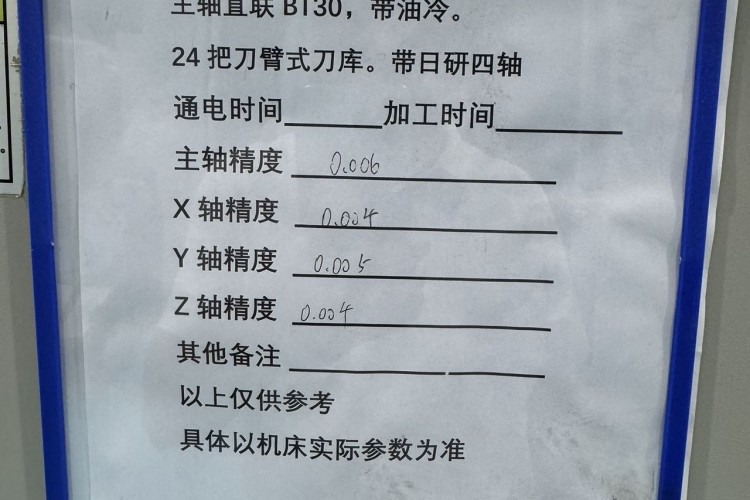 主轴直联 BT30，带油冷。
24 把刀臂式刀库。带日研四轴
通电时间______加工时间________
主轴精度 0.006
X 轴精度 0.004
Y 轴精度 0.005
Z 轴精度 0.004
其他备注
以上仅供参考
具体以机床实际参数为准